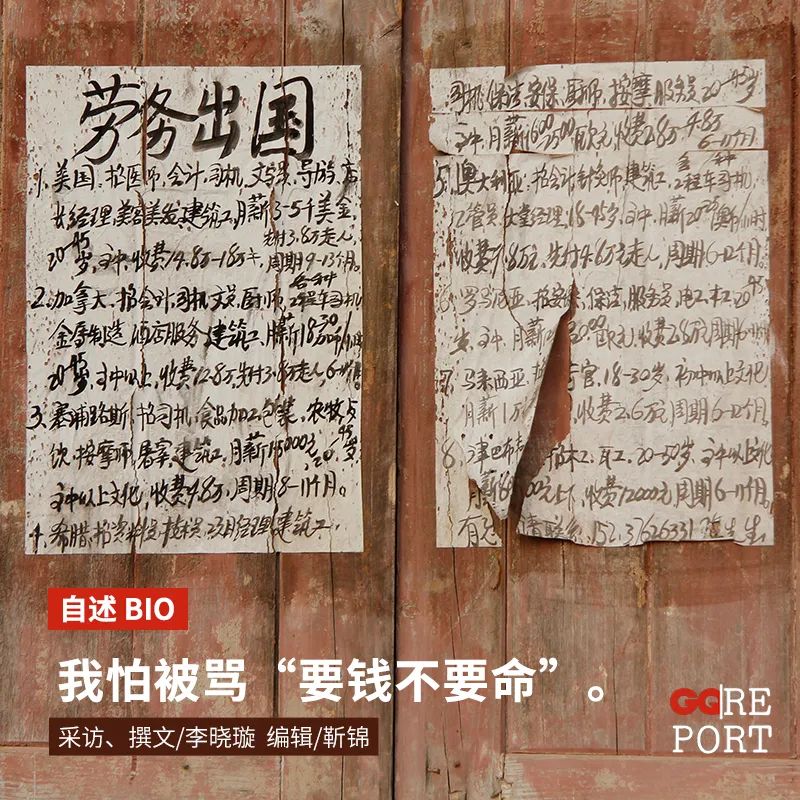 劳务出国
1. 美国. 招医师, 会计, 司机, 文员, 导游, 店
长经理, 美容美发, 建筑工, 月薪3-5千美金,
20-45岁, 文中, 收费14.8万-18万, 先付3.8万走人, 周期9-13个月。
2. 加拿大. 招会计, 司机, 文员, 厨师, 各种工程车司机
金属制造, 酒店服务, 建筑工, 月薪18-30
20-45岁, 中以上, 收费12.8万, 先付3.8万走人
3. 塞浦路斯. 招司机, 食品加工包装, 农牧
饮, 按摩师, 屠宰, 建筑工, 月薪15000元, 20-45岁,
中以上文化, 收费4.8万, 周期8-11个月。
4. 希腊. 招 项目经理, 建筑工,
司机, 保洁, 安保, 厨师, 按摩, 服务员 20-45岁
月薪 欧元, 收费2.8万-4.8万 6-11个月
5. 澳大利亚. 招会计, 针灸师, 建筑工, 各种工程车司机,
管员, 大堂经理, 18-45岁, 月薪20-25澳币/小时
收费 8万元, 先付4.8万元走人, 周期6-12个月。
6. 罗马尼亚. 招安保, 保洁, 服务员, 电工, 木工 20-45
月薪 欧元, 收费2.8万元 周期6-11
7. 马来西亚. 招 官, 18-30岁, 初中以上文化
月薪1万 收费2.6万元, 周期6-12个月。
8. 津巴布 招木工, 瓦工, 20-50岁, 中以上文化
月薪 元上下, 收费12000元, 周期6-11个月。
有 请联系 152 37626331 生
自述 BIO
我怕被骂“要钱不要命”。
采访、撰文/李晓璇 编辑/靳锦
GQ|RE
PORT